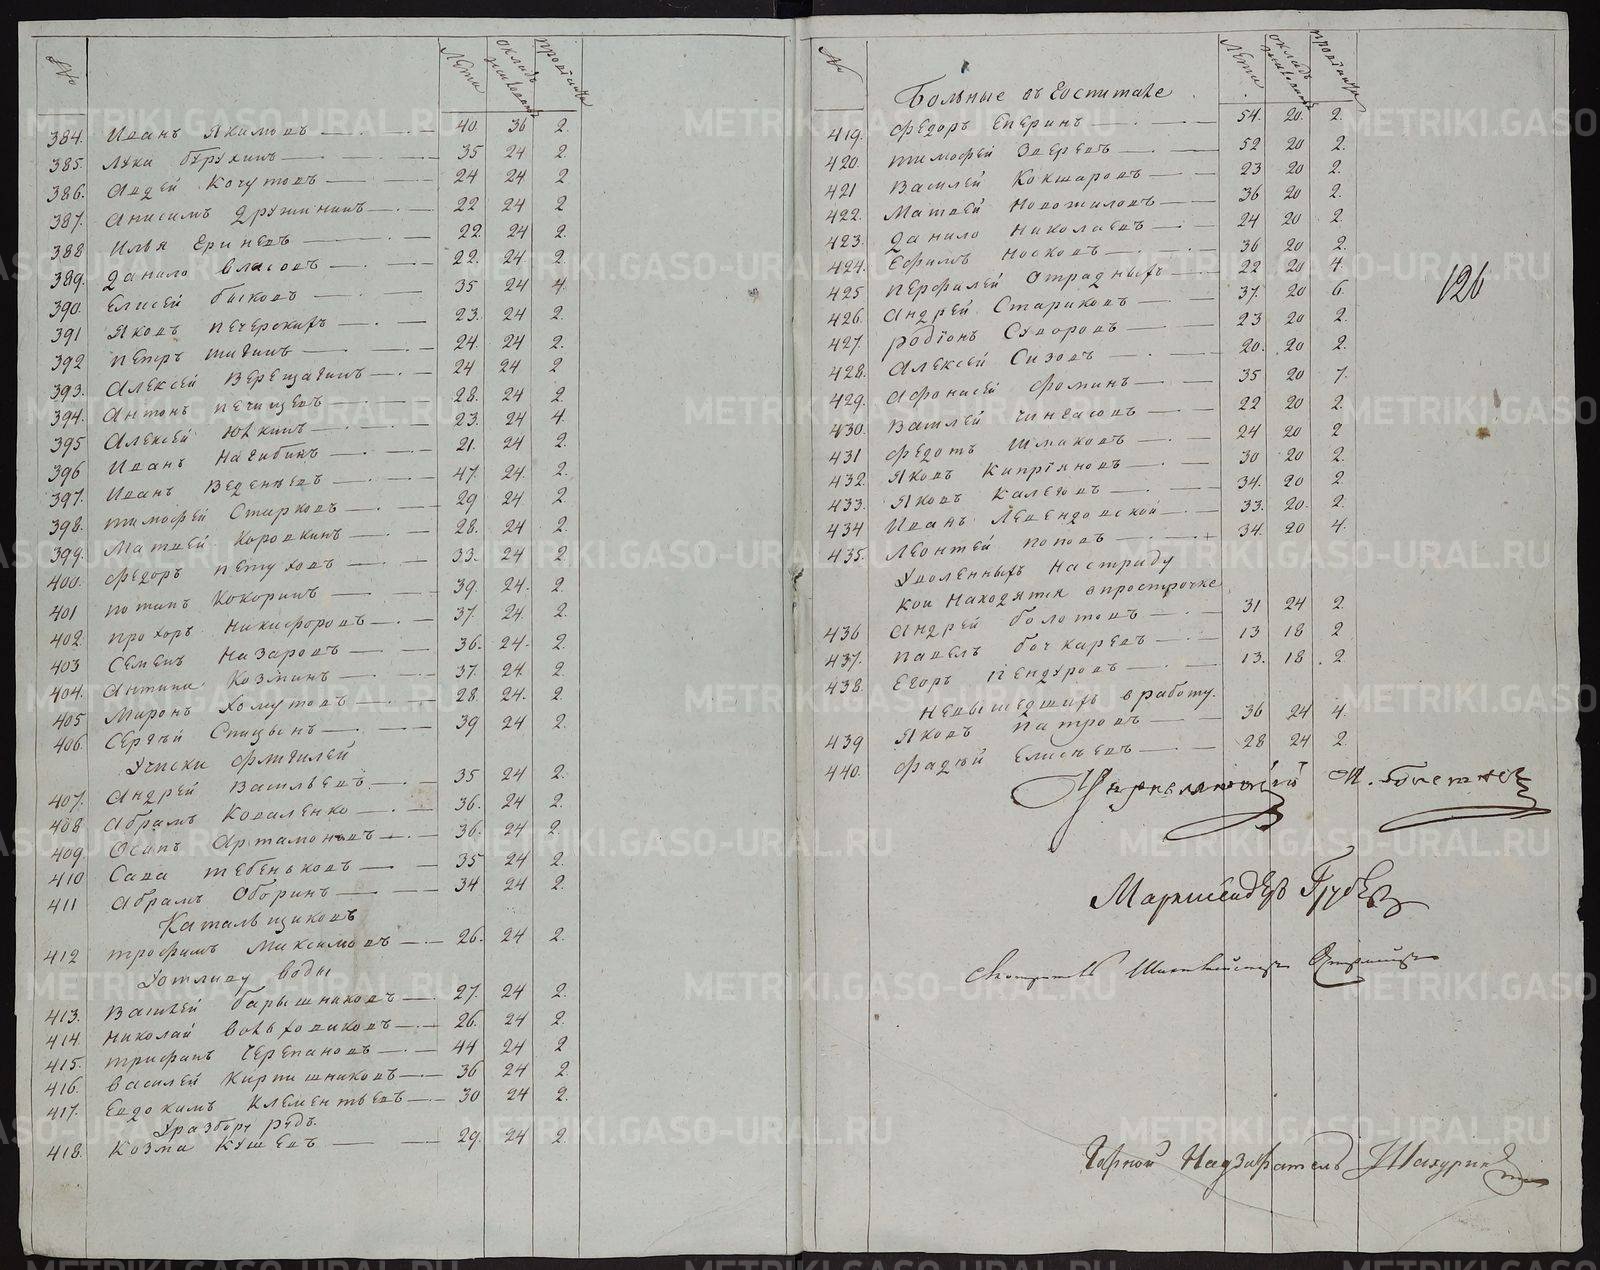 № Лета окладъ жалованья провианта
384. Иванъ Якимовъ 40. 36 2.
385. Лука бурухинъ 35 24 2.
386. Авдей Кочутовъ 24 24 2
387. Анисимъ Дружининъ 22 24 2
388 Илья Еринѣевъ 22. 24 2.
389. Данило Власовъ 22. 24 2.
390. Елисей быковъ 35 24 4.
391 Яковъ печерскихъ 23. 24 2.
392 петръ шигинъ 24. 24 2.
393. Алексей Верещагинъ 24 24 2
394. Антонъ печищевъ 28. 24 2.
395 Алексей Юткинъ 23. 24 4.
396 Иванъ Нагибинъ 21. 24 2.
397. Иванъ Веденѣевъ 47. 24. 2.
398. тимофей Старковъ 29 24 2.
399. Матвей Коровкинъ 28. 24. 2.
400. федоръ петуховъ 33. 24 2.
401 потапъ Кокоринъ 39. 24. 2.
402. прохоръ Никифоровъ 37. 24. 2.
403 Семенъ Назаровъ 36. 24. 2.
404. Антипа Козминъ 37. 24. 2.
405 Миронъ Хомутовъ 28. 24. 2.
406. Сергѣй Спицынъ 39 24 2.
Учиски флигилей
407. Андрей Васильевъ 35 24 2.
408 Абрамъ Коваленко 36. 24 2.
409. Осипъ Артамоновъ 36. 24 2.
410 Сава тебеньковъ 35 24 2.
411 Абрамъ Оборинъ 34 24 2.
Катальщиковъ
412 трофимъ Максимовъ 26. 24 2.
Уотливу воды
413. Василей барышниковъ 27. 24 2.
414. Николай 26. 24 2.
415. трифанъ Черепановъ 44 24 2
416. Василей Кирпишниковъ 36 24 2.
417. Евдокимъ Клементьевъ 30 24 2.
Уразбору рудъ.
418. Козма Кушевъ 29. 24 2.
№ Лета окладъ жалованья провианта
126
Больные въ госпитале
419. федоръ Еперинъ 54. 20. 2.
420. тимофей Зверевъ 52 20 2.
421 Василей Кокшаровъ 23 20 2.
422. Матвей Новожиловъ 36 20 2.
423. Данило Николаевъ 24 20 2.
424. Ефимъ Носковъ 36 20 2.
425 перфилей Отрадныхъ 22 20 4.
426. Андрей Стариковъ 37. 20 6.
427. родіонъ Суворовъ 23 20 2.
428. Алексей Сизовъ 20. 20 2.
429. Афонасей фоминъ 35 20 7.
430. Василей Чингасовъ 22 20 2.
431 федотъ Шмаковъ 24 20 2
432. Яковъ Кипріяновъ 30 20 2.
433. Яковъ Калеговъ 34. 20 2.
434 Иванъ Левендовской 33. 20. 2.
435. Леонтей поповъ 34. 20 4.
Уволенныхъ настраду
кои находятся впрострочке
436 Андрей болотовъ 31 24 2.
437. павелъ бочкаревъ 13 18 2
438. Егоръ 13. 18. 2
Невышедшихъ вработу.
439 Яковъ патровъ 36 24 4.
440. фадѣй Елисѣевъ 28 24 2.
Маркшейдеръ Грубе
Горной Надзиратель
METRIKI.GASO-URAL.RU